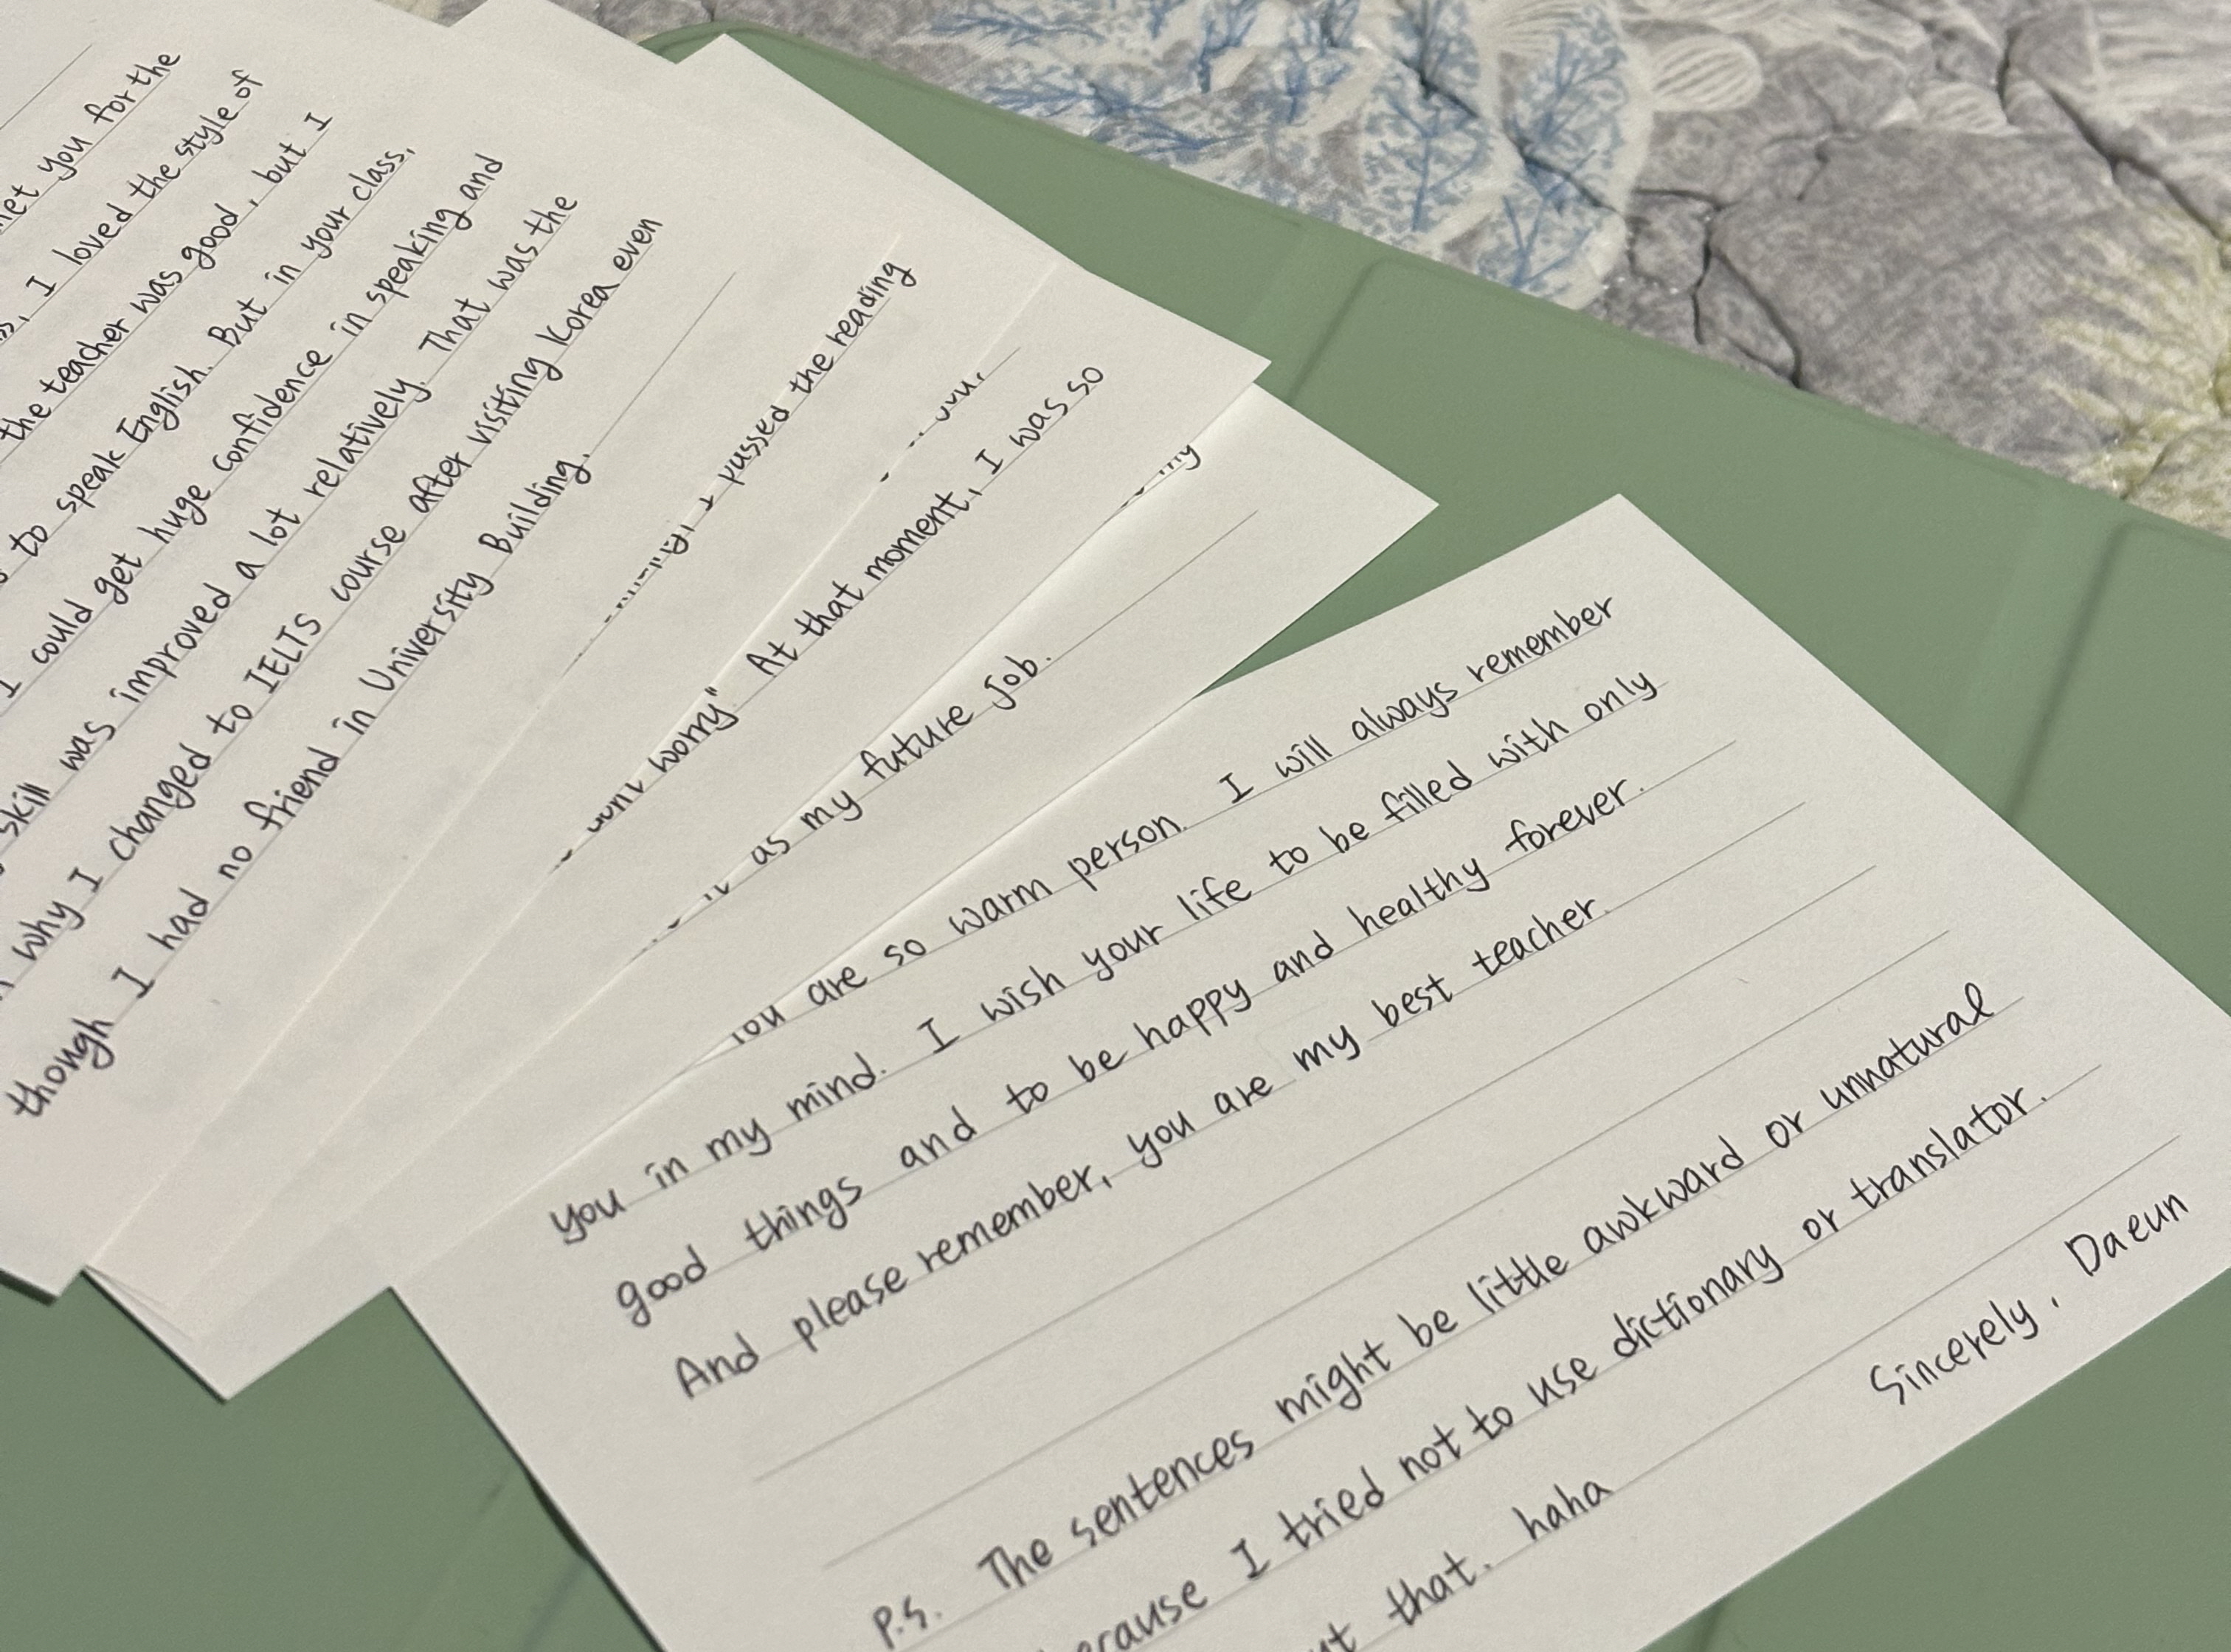 you for the
I loved the style of
the teacher was good, but I
to speak English. But in your class,
I could get huge confidence in speaking and
skill was improved a lot relatively. That was the
why I changed to IELTS course after visiting Korea even
though I had no friend in University Building.
I passed the reading
worry" At that moment, I was so
as my future job.
You are so warm person. I will always remember
you in my mind. I wish your life to be filled with only
good things and to be happy and healthy forever.
And please remember, you are my best teacher.
P.S. The sentences might be little awkward or unnatural
because I tried not to use dictionary or translator.
that. haha
Sincerely, Daeun